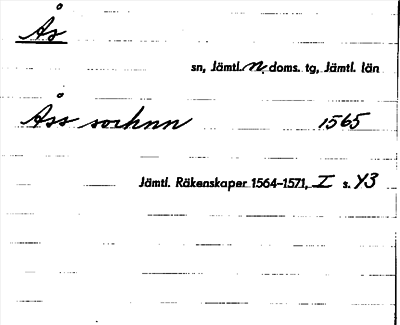 Ås
sn, Jämtl. n. doms. tg, Jämtl. län
Åss sochnn 1565
Jämtl. Räkenskaper 1564-1571, I s. 43